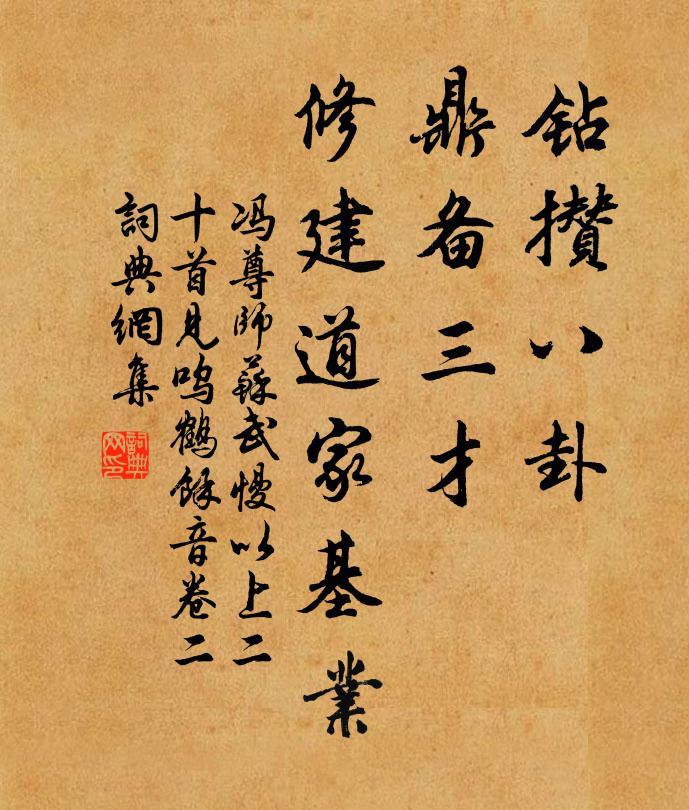 钻攒八卦
鼎备三才
修建道家基業
冯尊師蘇武慢以上二
十首見鸣鶴餘音卷二
詞典網集
詞典網印